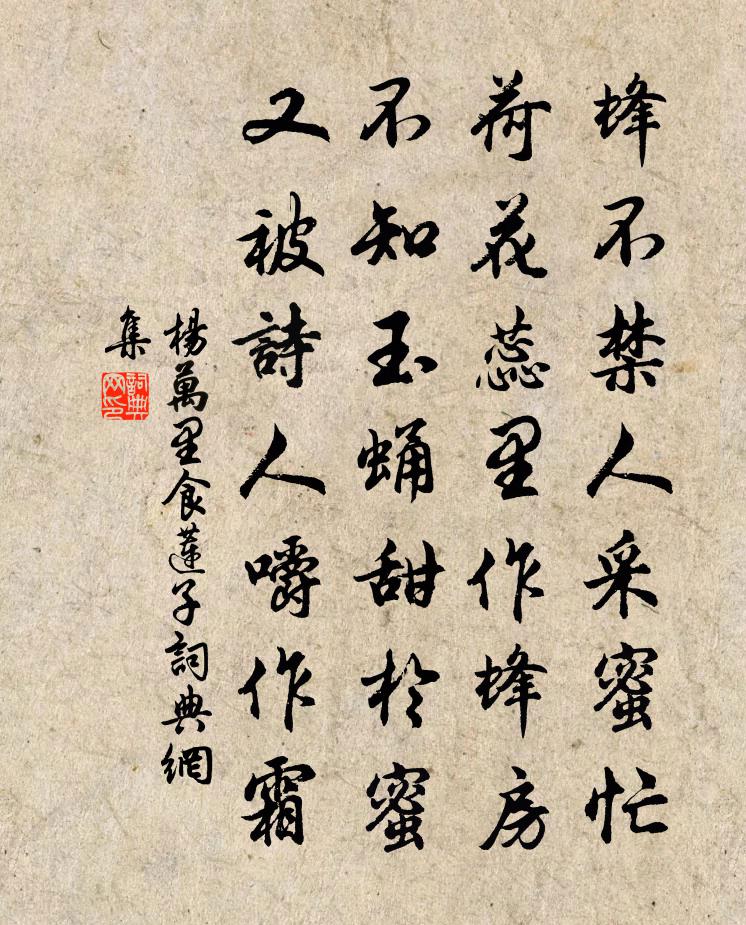 蜂不禁人采蜜忙
荷花蕊里作蜂房
不知玉蛹甜於蜜
又被詩人嚼作霜
楊萬里食蓮子詞典網
集
詞典
网印